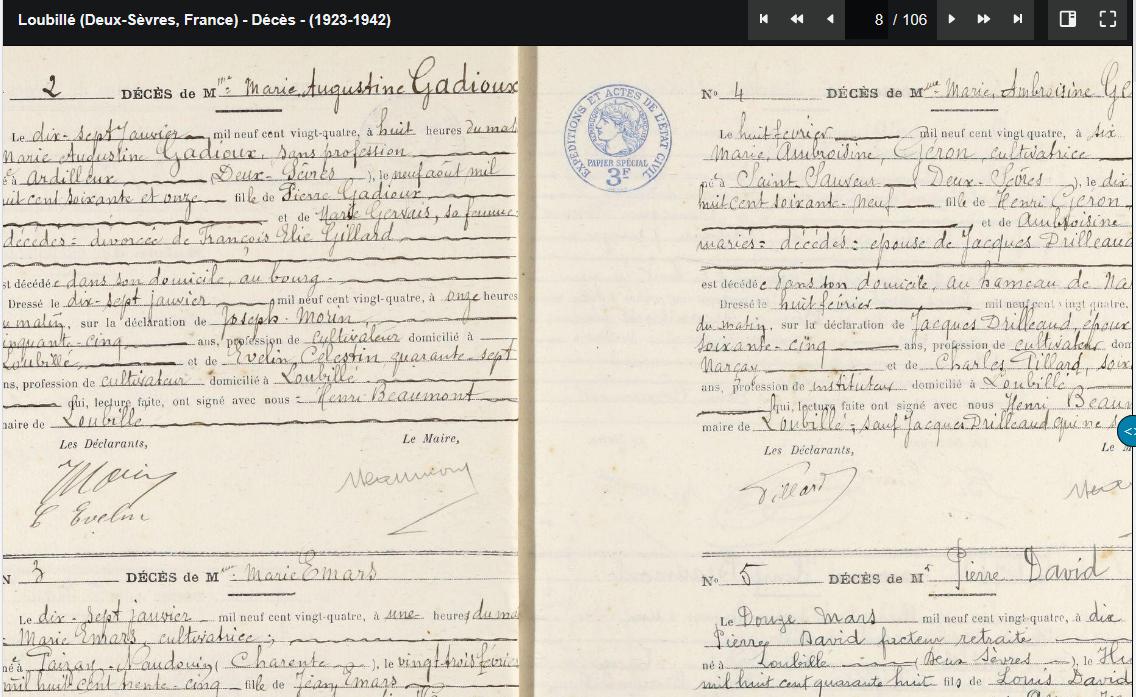 Loubillé (Deux-Sèvres, France) - Décès - (1923-1942)
8 / 106
2 DÉCÈS de Mme Marie Augustine Gadioux
Le dix-sept janvier mil neuf cent vingt-quatre, à huit heures du mat
Marie Augustine Gadioux, sans profession
é à Ardilleux (Deux-Sèvres), le neuf août mil
uit cent soixante et onze fille de Pierre Gadioux
et de Marie Gervais, sa femme
décédés : divorcée de François Elie Gillard
st décédée dans son domicile, au bourg
Dressé le dix-sept janvier mil neuf cent vingt-quatre, à onze heures
u matin, sur la déclaration de Joseph Morin
inquante-cinq ans, profession de cultivateur domicilié à
Loubillé et de Evelin, Célestin quarante-sept
ns, profession de cultivateur domicilié à Loubillé
qui, lecture faite, ont signé avec nous : Henri Beaumont
maire de Loubillé
Les Déclarants, Le Maire,
Morin
C Evelin
N 3 DÉCÈS de Mme Marie Emars
Le dix-sept janvier mil neuf cent vingt-quatre, à une heures du ma
Marie Emars, cultivatrice
né à Paizay-Naudouin (Charente), le vingt trois févrie
mil huit cent trente-cinq fille de Jean Emars
EXPÉDITIONS ET ACTES DE L'ÉTAT CIVIL
PAPIER SPÉCIAL
3F
No 4 DÉCÈS de Mme Marie, Ambroisine Gé
Le huit février mil neuf cent vingt-quatre, à six
Marie, Ambroisine, Géron, cultivatrice
né à Saint Sauveur Deux-Sèvres), le dix
huit cent soixante-neuf fille de Henri Géron
et de Ambroisine
mariés : décédés : épouse de Jacques Drilleaud
est décédée dans son domicile, au hameau de Na
Dressé le huit février mil neuf cent vingt quatre,
du matin, sur la déclaration de Jacques Drilleaud, époux
soixante-cinq ans, profession de cultivateur dom
Narçay et de Charles Pillard, soix
ans, profession de instituteur domicilié à Loubillé
qui, lecture faite, ont signé avec nous Henri Beaum
maire de Loubillé ; sauf Jacques Drilleaud qui ne s
Les Déclarants, Le M
Pillard
No 5 DÉCÈS de Mr Pierre David
Le Douze Mars mil neuf cent vingt-quatre, à dix
Pierre David facteur retraité
né à Loubillé (Deux Sèvres), le Hu
mil huit cent quarante huit fils de Louis David